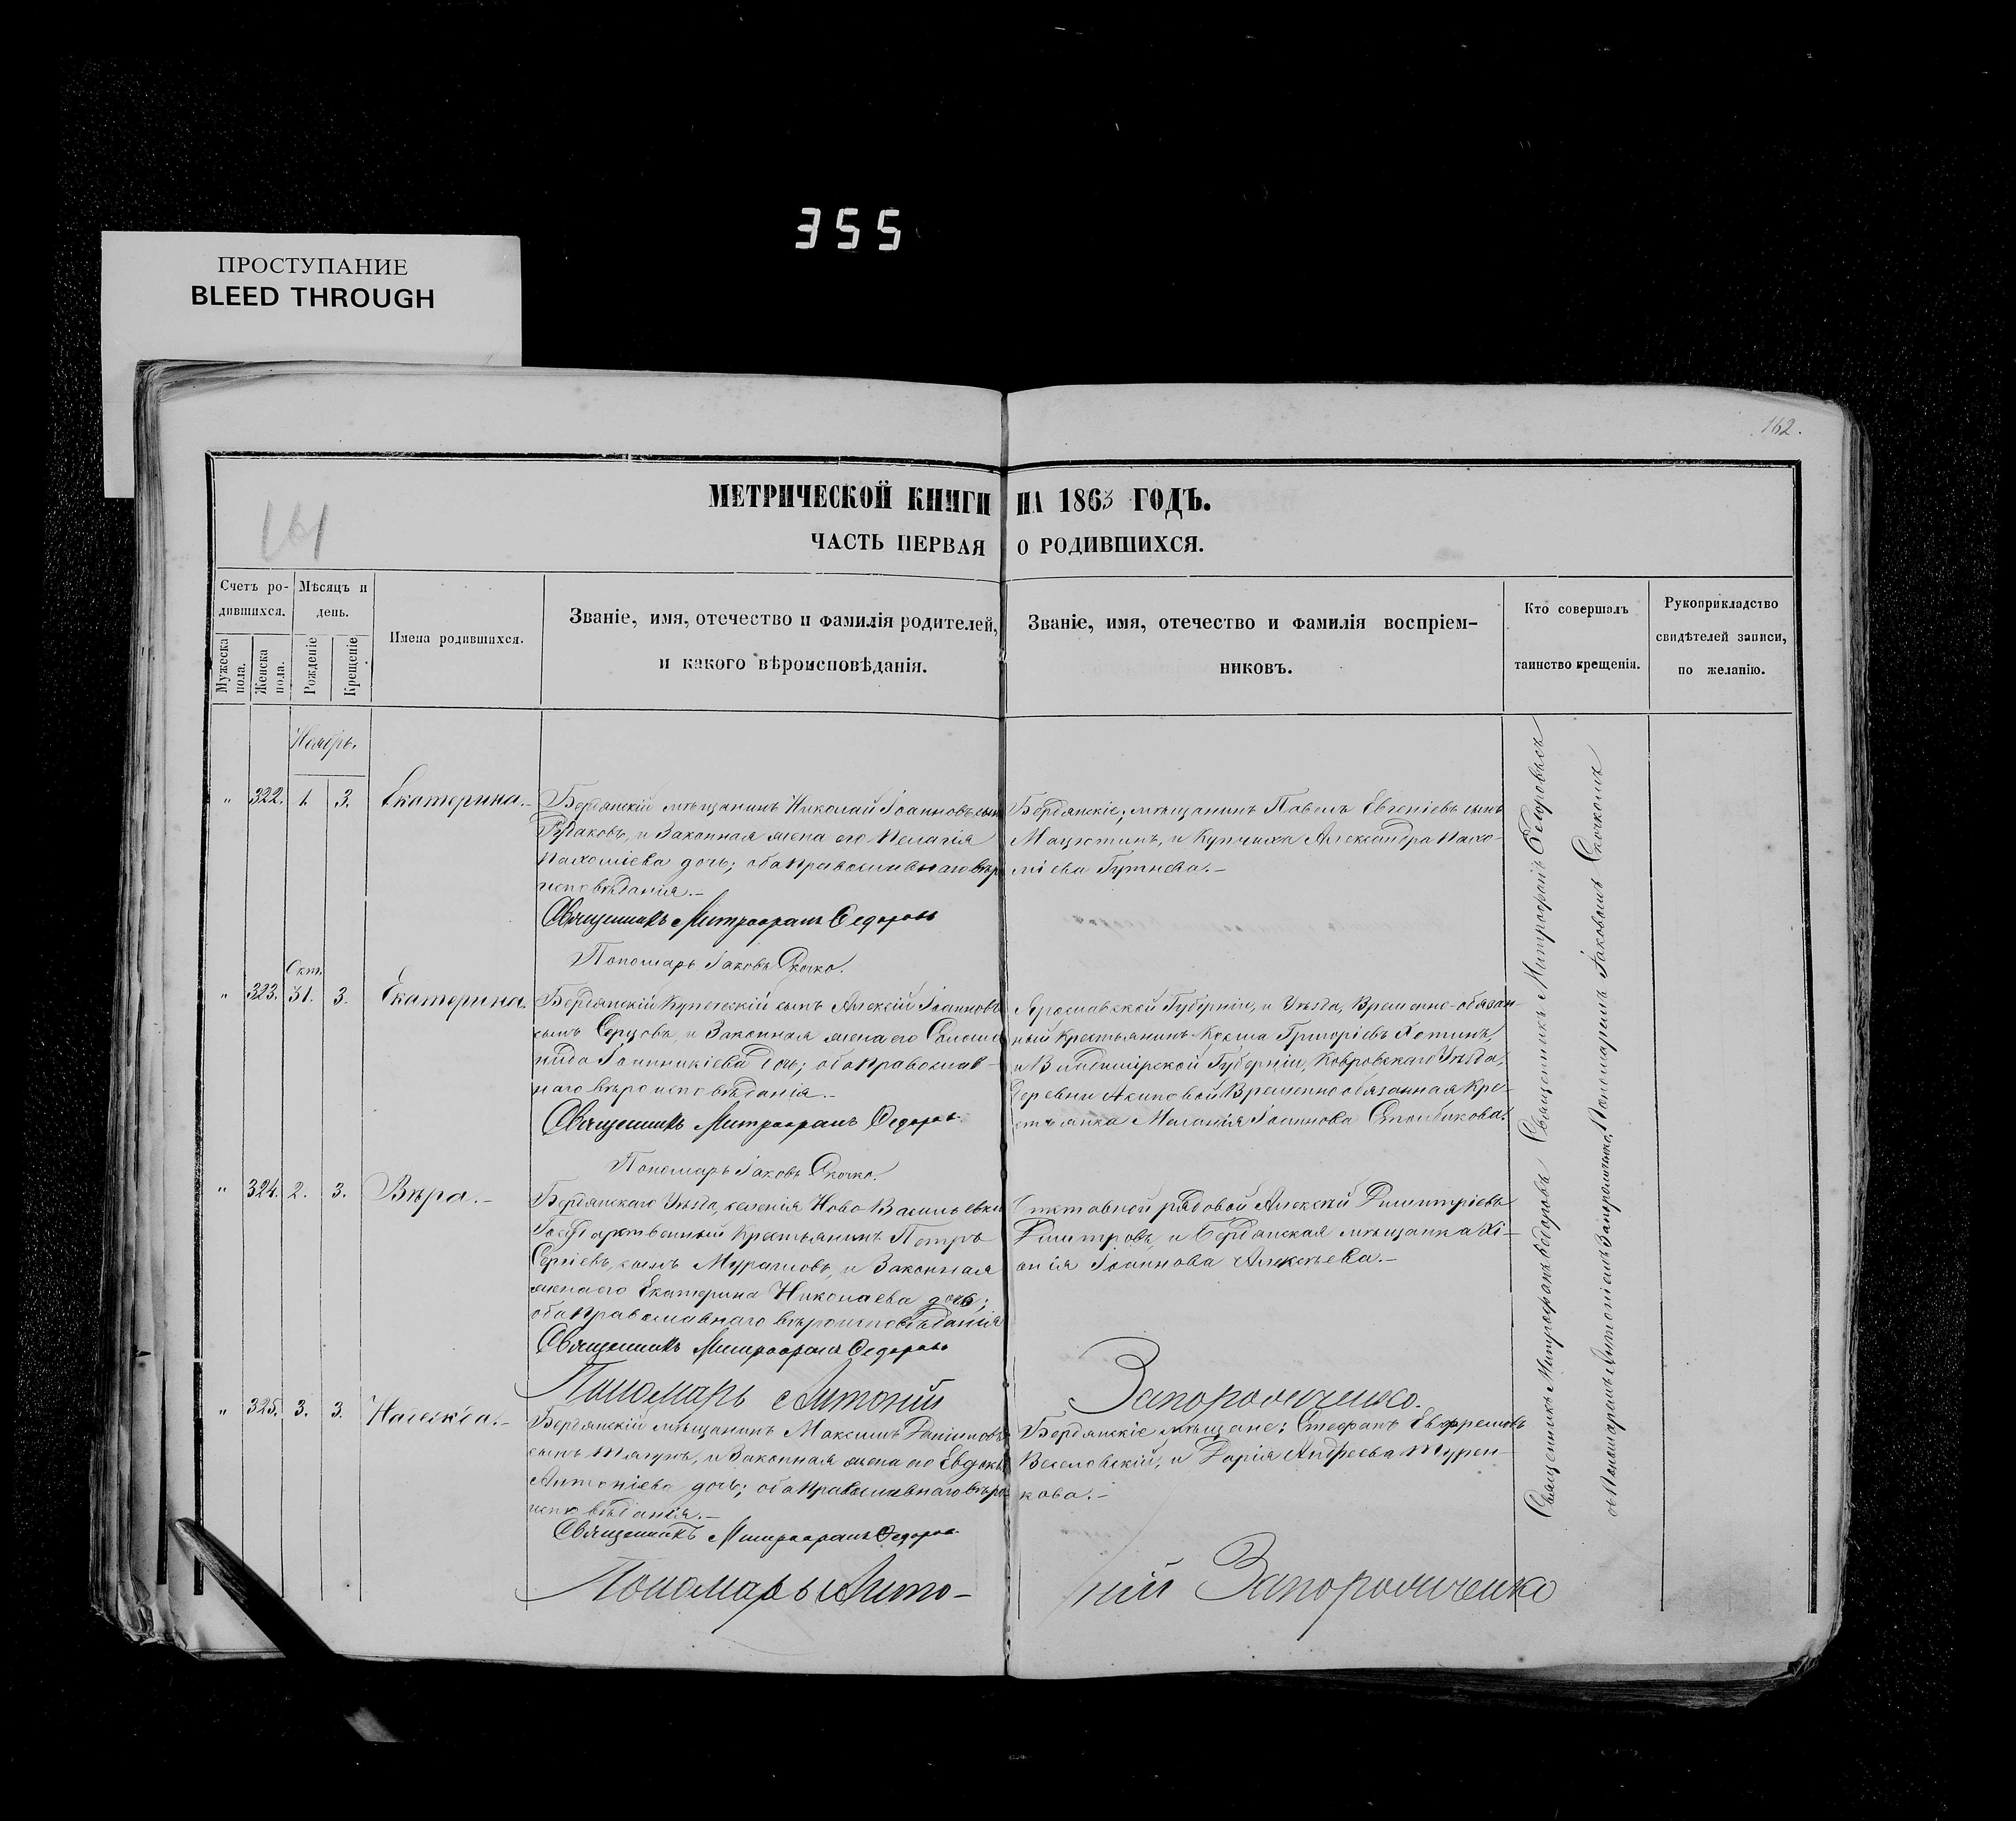 355
ПРОСТУПАНИЕ
BLEED THROUGH
162.
161
МЕТРИЧЕСКОЙ КНИГИ НА 1863 ГОДЪ.
ЧАСТЬ ПЕРВАЯ О РОДИВШИХСЯ.
Счетъ ро-
дившихся.
Мужеска пола.
Женска пола.
Мѣсяцъ и
день.
Рожденіе
Крещеніе
Имена родившихся.
Званіе, имя, отечество и фамилія родителей,
и какого вѣроисповѣданія.
Званіе, имя, отечество и фамилія воспріем-
никовъ.
Кто совершалъ
таинство крещенія.
Рукоприкладство
свидѣтелей записи,
по желанію.
Ноябрь.
" 322. 1. 3. Екатерина.-
Бердянскій мѣщанинъ Николай Іоанновъ сынъ
и Законная жена его Пелагія
Пахоміева дочь; оба Православнаго вѣро
исповѣданія.-
Священникъ Митрофанъ Федоровъ
Пономарь Іаковъ Скочко.
Бердянскіе; мѣщанинъ Павелъ Евгеніевъ сынъ
и Купчиха Александра Пахо-
міева
Окт.
" 323. 31. 3. Екатерина.
Бердянскій Купеческій сынъ Алексій Іоанновъ
сынъ и Законная жена его Соломо
нида Іоанникіева дочь; оба Православ-
наго вѣроисповѣданія.-
Священникъ Митрофанъ Федоровъ
Пономарь Іаковъ Скочко.
Ярославской Губерніи, и Уѣзда, Временно-обязан-
ный крестьянинъ Косма Григоріевъ Хотинъ,
и Владимірской Губерніи, Ковровскаго Уѣзда,
Деревни Временно обязанная Кре-
стьянка Меланія Іоаннова
" 324. 2. 3. Вѣра.-
Бердянскаго Уѣзда, селенія Ново-Васильевки
Государственный Крестьянинъ Петръ
Сергіевъ сынъ и Законная
жена его Екатерина Николаева дочь;
оба Православнаго вѣроисповѣданія
Священникъ Митрофанъ Федоровъ
Пономарь Антоній Запорожченко.
Отставной рядовой Алексій Димитріевъ
Дмитровъ, и Бердянская мѣщанка Хі-
онія Іоаннова Алексѣева.-
" 325. 3. 3. Надежда.-
Бердянскій мѣщанинъ Максимъ Даніиловъ
сынъ и Законная жена его Евдокія
Антоніева дочь; оба Православнаго вѣро-
исповѣданія.-
Священникъ Митрофанъ Федоровъ
Пономарь Анто-ній Запорожченко
Бердянскіе мѣщане: Стефанъ Евфремовъ
Веселовскій, и Дарія Андреева Турен-
кова.-
Священникъ Митрофанъ Федоровъ
съ Пономаремъ Антоніемъ Запорожченко.
Священникъ Митрофаній Федоровъ съ
Пономаремъ Іаковомъ Скочкомъ